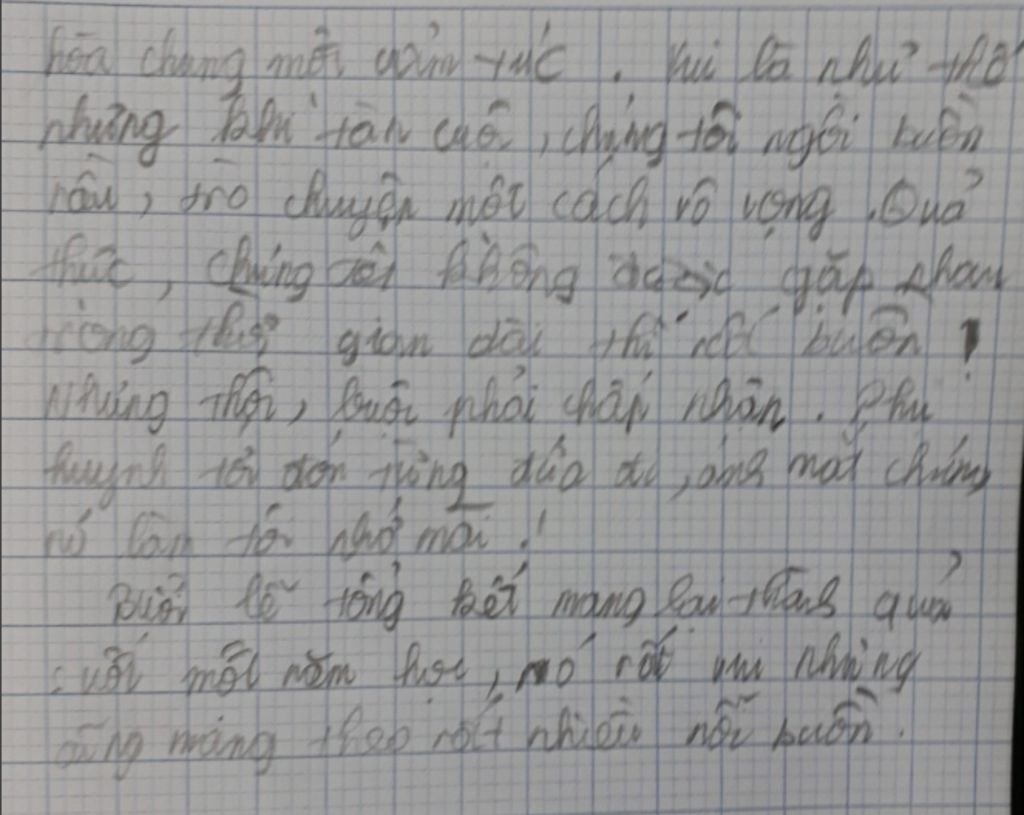 hòa chung một cảm xúc. Vui là như thế
nhưng khi tàn cuộc, chúng tôi ngồi buồn
rầu, trò chuyện một cách vô vọng. Quả
thực, chúng tôi không được gặp nhau
trong thời gian dài thì rất buồn!
Nhưng thôi, cuối phải chấp nhận. Phụ
huynh tới đón từng đứa đi, ánh mắt chúng
nó làm tôi nhớ mãi!
Buổi lễ tổng kết mang lại thành quả
cuối một năm học, nó rất vui nhưng
cũng mang theo rất nhiều nỗi buồn.